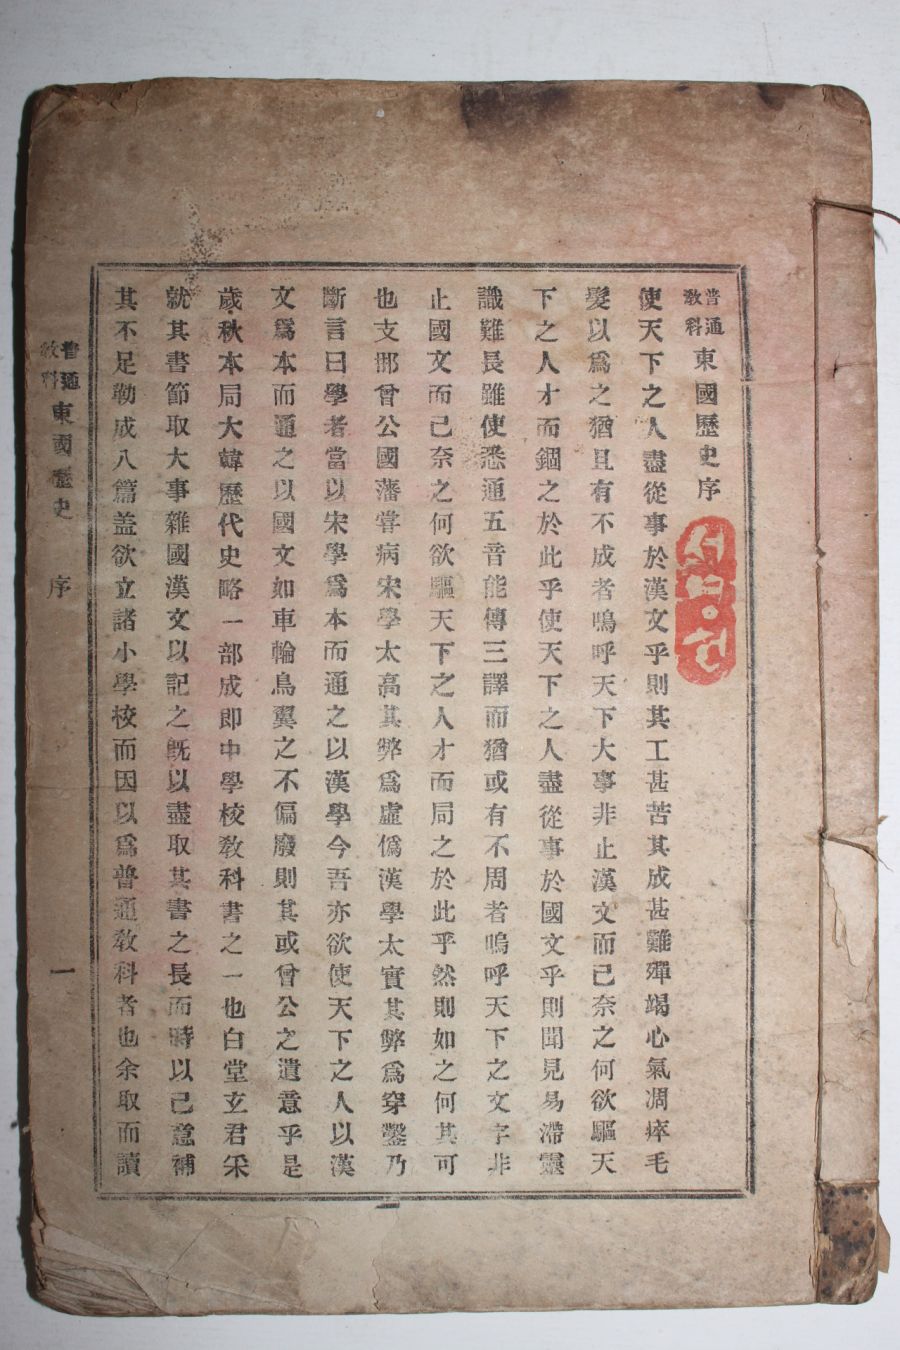 普通敎科 東國歷史序
서명현
使天下之人盡從事於漢文乎則其工甚苦其成甚難殫竭心氣凋瘁毛
髮以爲之猶且有不成者嗚呼天下大事非止漢文而已奈之何欲驅天
下之人才而錮之於此乎使天下之人盡從事於國文乎則聞見易滯靈
識難長雖使悉通五音能傳三譯而猶或有不周者嗚呼天下之文字非
止國文而已奈之何欲驅天下之人才而局之於此乎然則如之何其可
也支那曾公國藩甞病宋學太高其弊爲虛僞漢學太實其弊爲穿鑿乃
斷言曰學者當以宋學爲本而通之以漢學今吾亦欲使天下之人以漢
文爲本而通之以國文如車輪鳥翼之不偏廢則其或曾公之遺意乎是
歲秋本局大韓歷代史略一部成即中學校敎科書之一也白堂玄君采
就其書節取大事雜國漢文以記之旣以盡取其書之長而時以己意補
其不足勒成八篇盖欲立諸小學校而因以爲普通敎科者也余取而讀
普通敎科 東國歷史 序 一